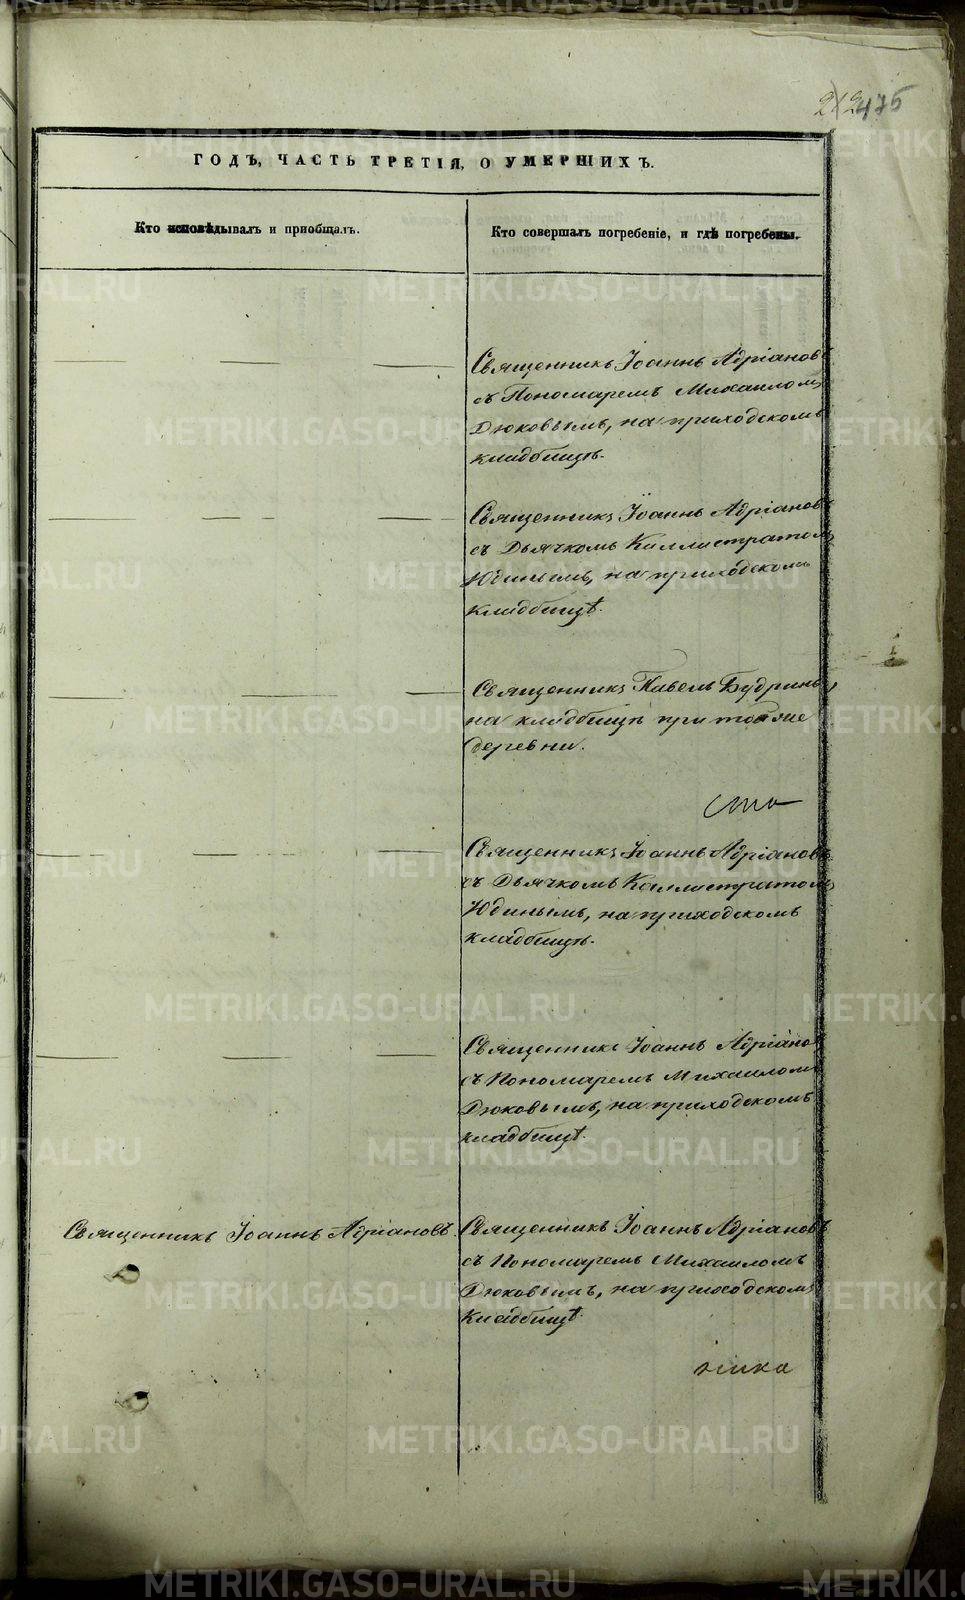 475
ГОДЪ, ЧАСТЬ ТРЕТІЯ, О УМЕРШИХЪ.
Кто исповѣдывалъ и приобщалъ.
Кто совершалъ погребеніе, и гдѣ погребены.
Священникъ Іоаннъ Адріановъ
съ Пономаремъ Михаиломъ
Дюковымъ, на приходскомъ
кладбищѣ.
Священникъ Іоаннъ Адріановъ
съ Дьячкомъ Каллистратомъ
Юдинымъ, на приходскомъ
кладбищѣ.
Священникъ Павелъ Будринъ,
на кладбищѣ при той же
деревни.
сто
Священникъ Іоаннъ Адріановъ
съ Дьячкомъ Каллистратомъ
Юдинымъ, на приходскомъ
кладбищѣ.
Священникъ Іоаннъ Адріановъ
съ Пономаремъ Михаиломъ
Дюковымъ, на приходскомъ
кладбищѣ.
Священникъ Іоаннъ Адріановъ.
Священникъ Іоаннъ Адріановъ
съ Пономаремъ Михаиломъ
Дюковымъ, на приходскомъ
кладбищѣ.
METRIKI.GASO-URAL.RU